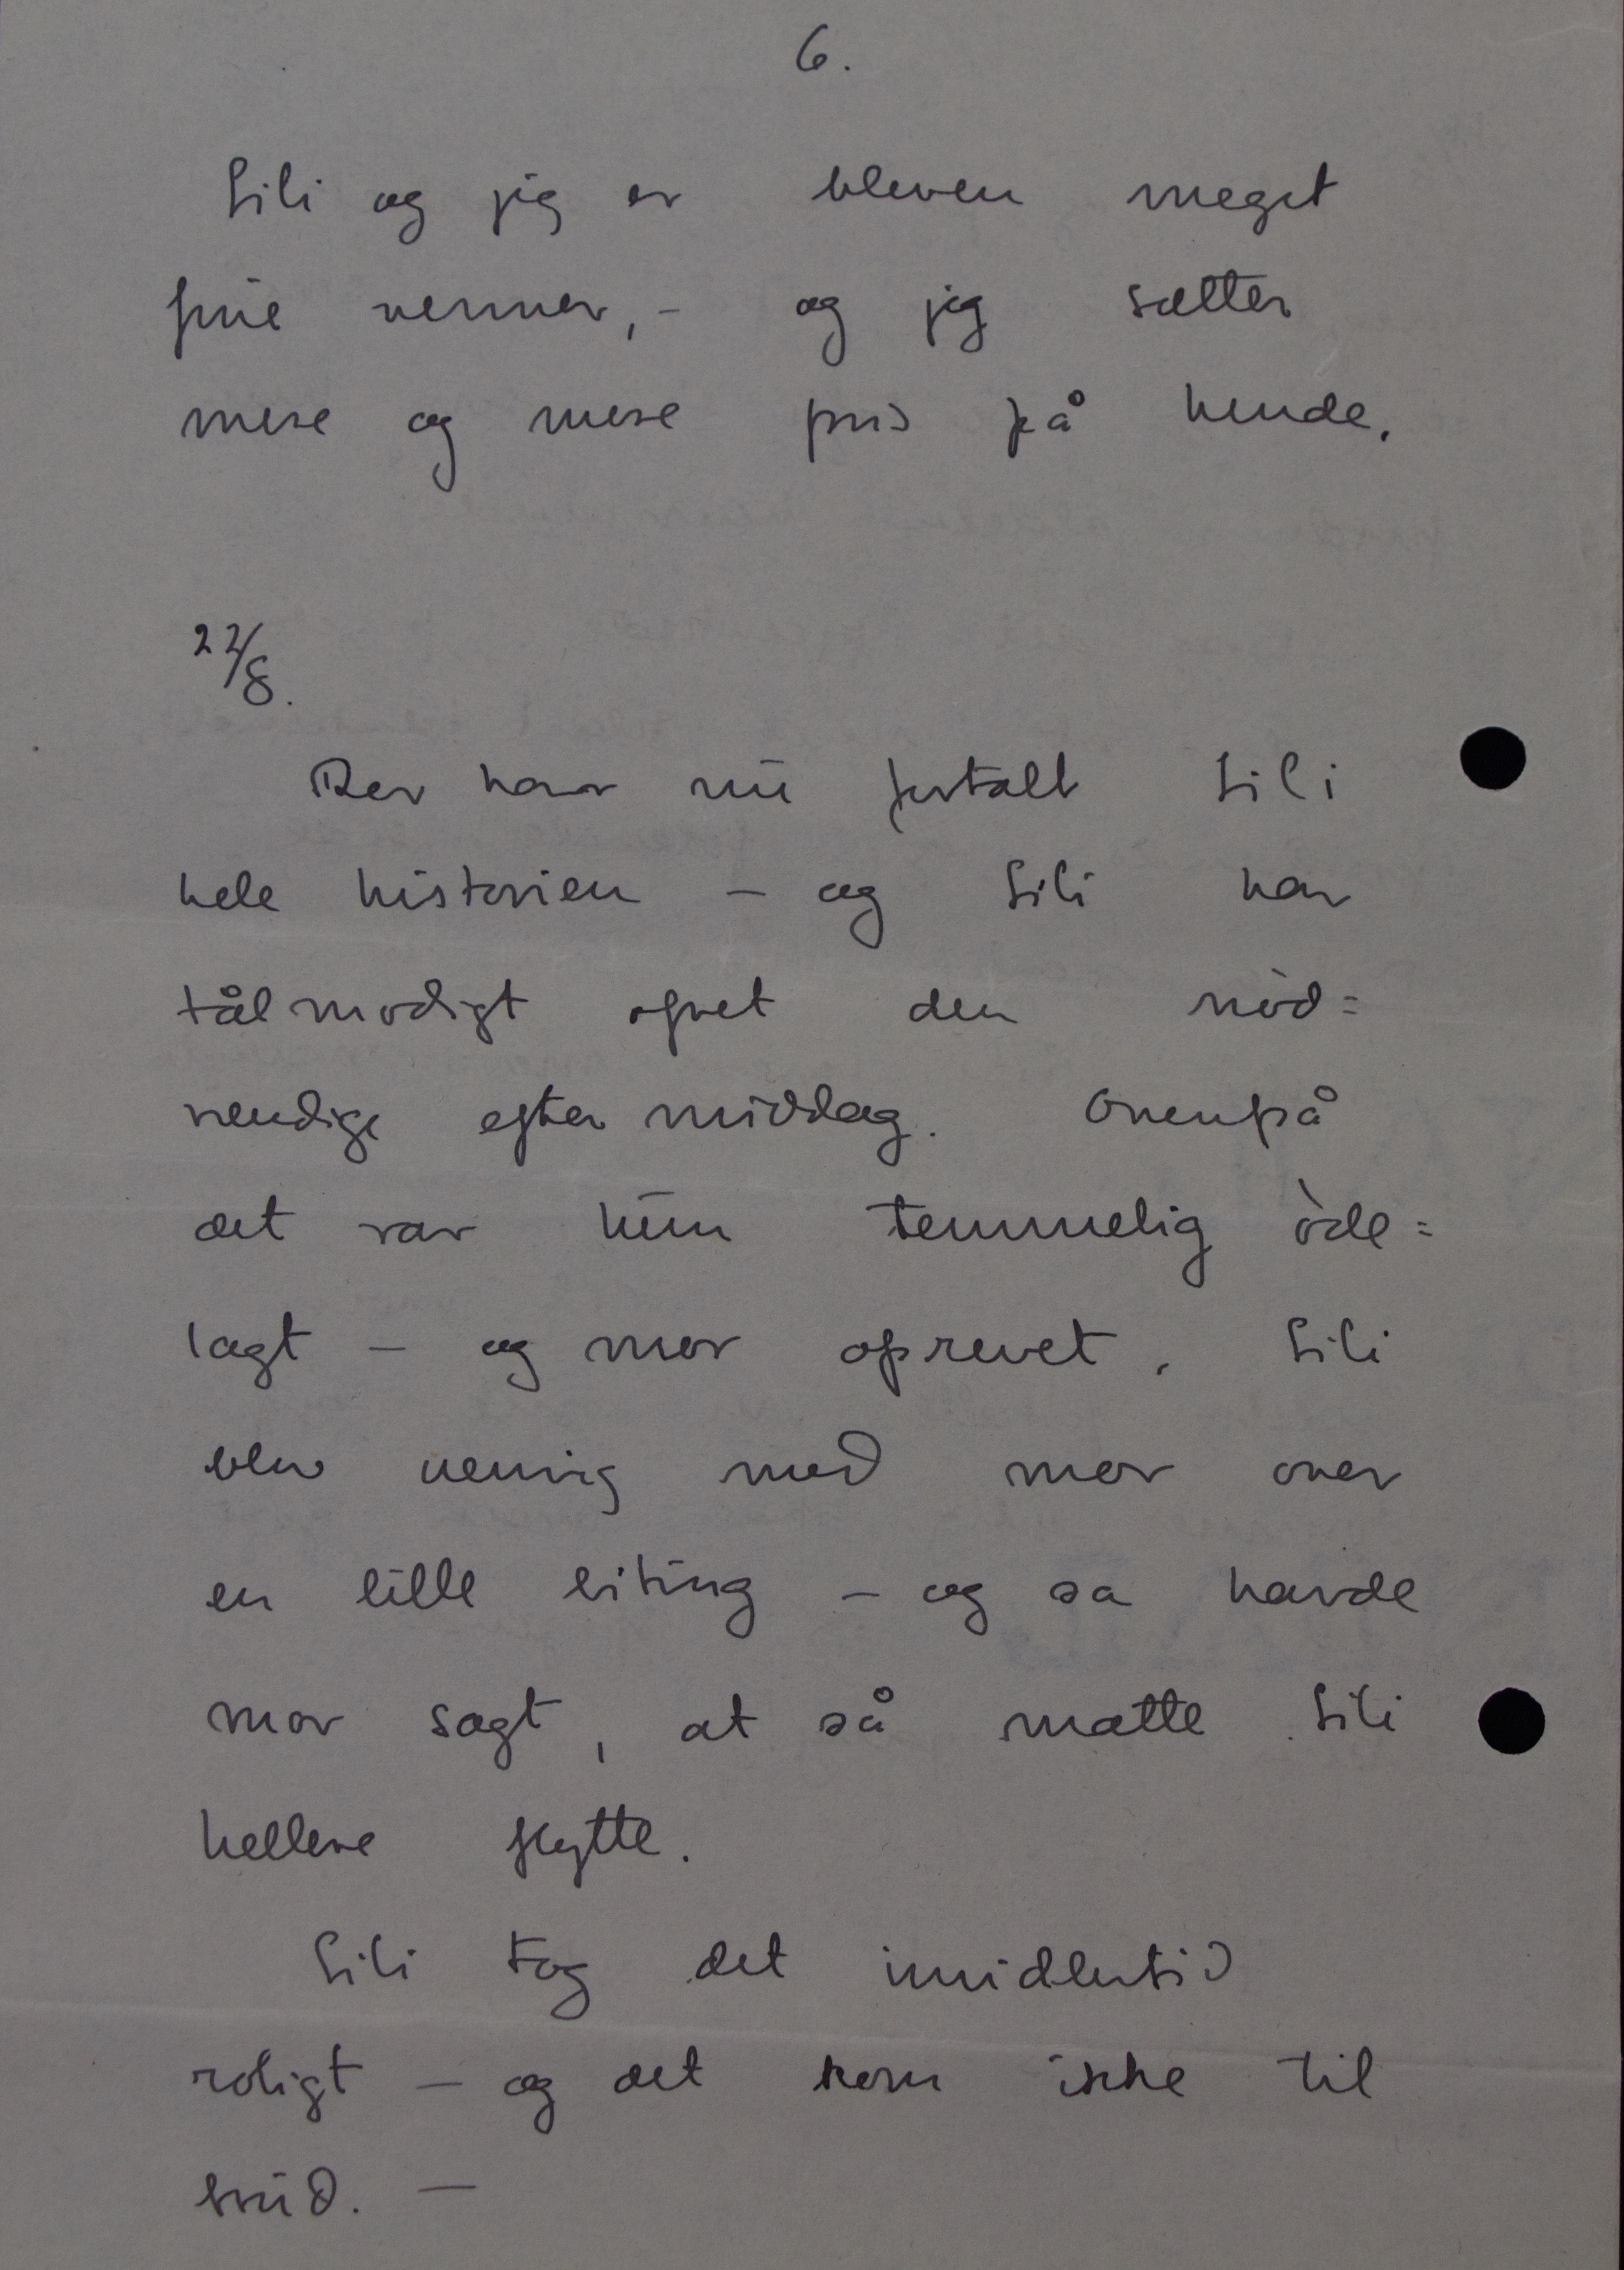 6.
Lili og jeg er bleven meget
fine venner, – og jeg sætter
mere og mere pris på hende.
22/8.
Der har nu fortalt Lili
hele historien – og Lili har
tålmodigt øvet den nød=
vendige eftermiddag. Ovenpå
det var hun temmelig øde=
lagt – og mor oprevet. Lili
blev uenig med mor over
en lille liting – og sa havde
mor sagt, at så måtte Lili
hellere flytte.
Lili tog det imidlertid
roligt – og det kom ikke til
brud. –